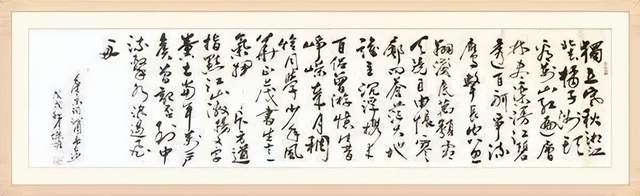 獨立寒秋湘江
北去橘子洲頭
看萬山紅遍層
林盡染漫江碧
透百舸爭流
鷹擊長空魚
翔淺底萬類霜
天競自由悵寥
廓問蒼茫大地
誰主沉浮攜來
百侶曾游憶往昔
崢嶸歲月稠
恰同學少年風
華正茂書生意
氣揮斥方遒
指點江山激揚文字
糞土當年萬戶
侯曾記否到中
流擊水浪遏飛
舟
毛澤東詞沁園春長沙
戊戌年